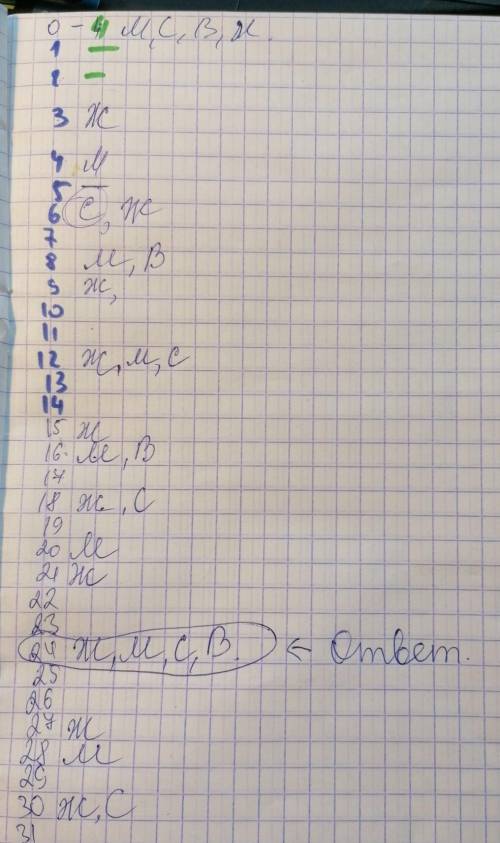 0 - М, С, В, Ж.
1 —
2 —
3 Ж
4 М
5 —
6 С, Ж
7
8 М, В
9 Ж,
10
11
12 Ж, М, С
13
14
15 Ж
16. М, В
17
18 Ж, С
19
20 М
21 Ж
22
23
24 Ж, М, С, В. ← Ответ.
25
26
27 Ж
28 М
29
30 Ж, С
31